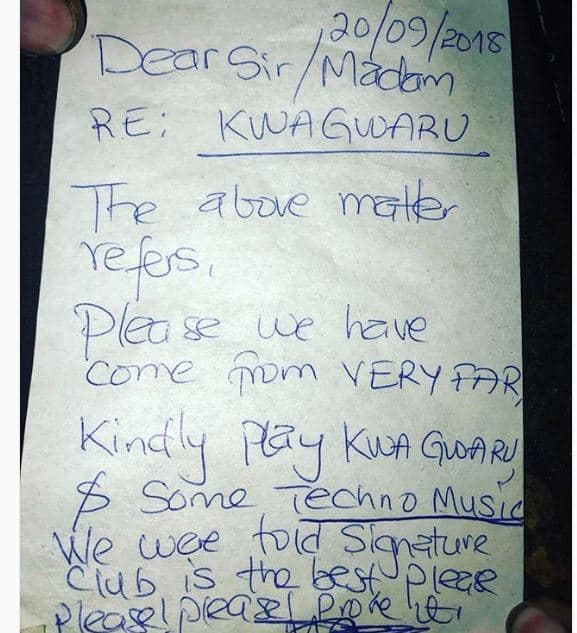 20/09/2018
Dear Sir/Madam
RE: KWAGWARU
The above matter
refers,
Please we have
come from VERY FAR,
Kindly play KWA GWARU
$ Some Techno Music
We wee told Signature
Club is the best please
please! please! Prove it!